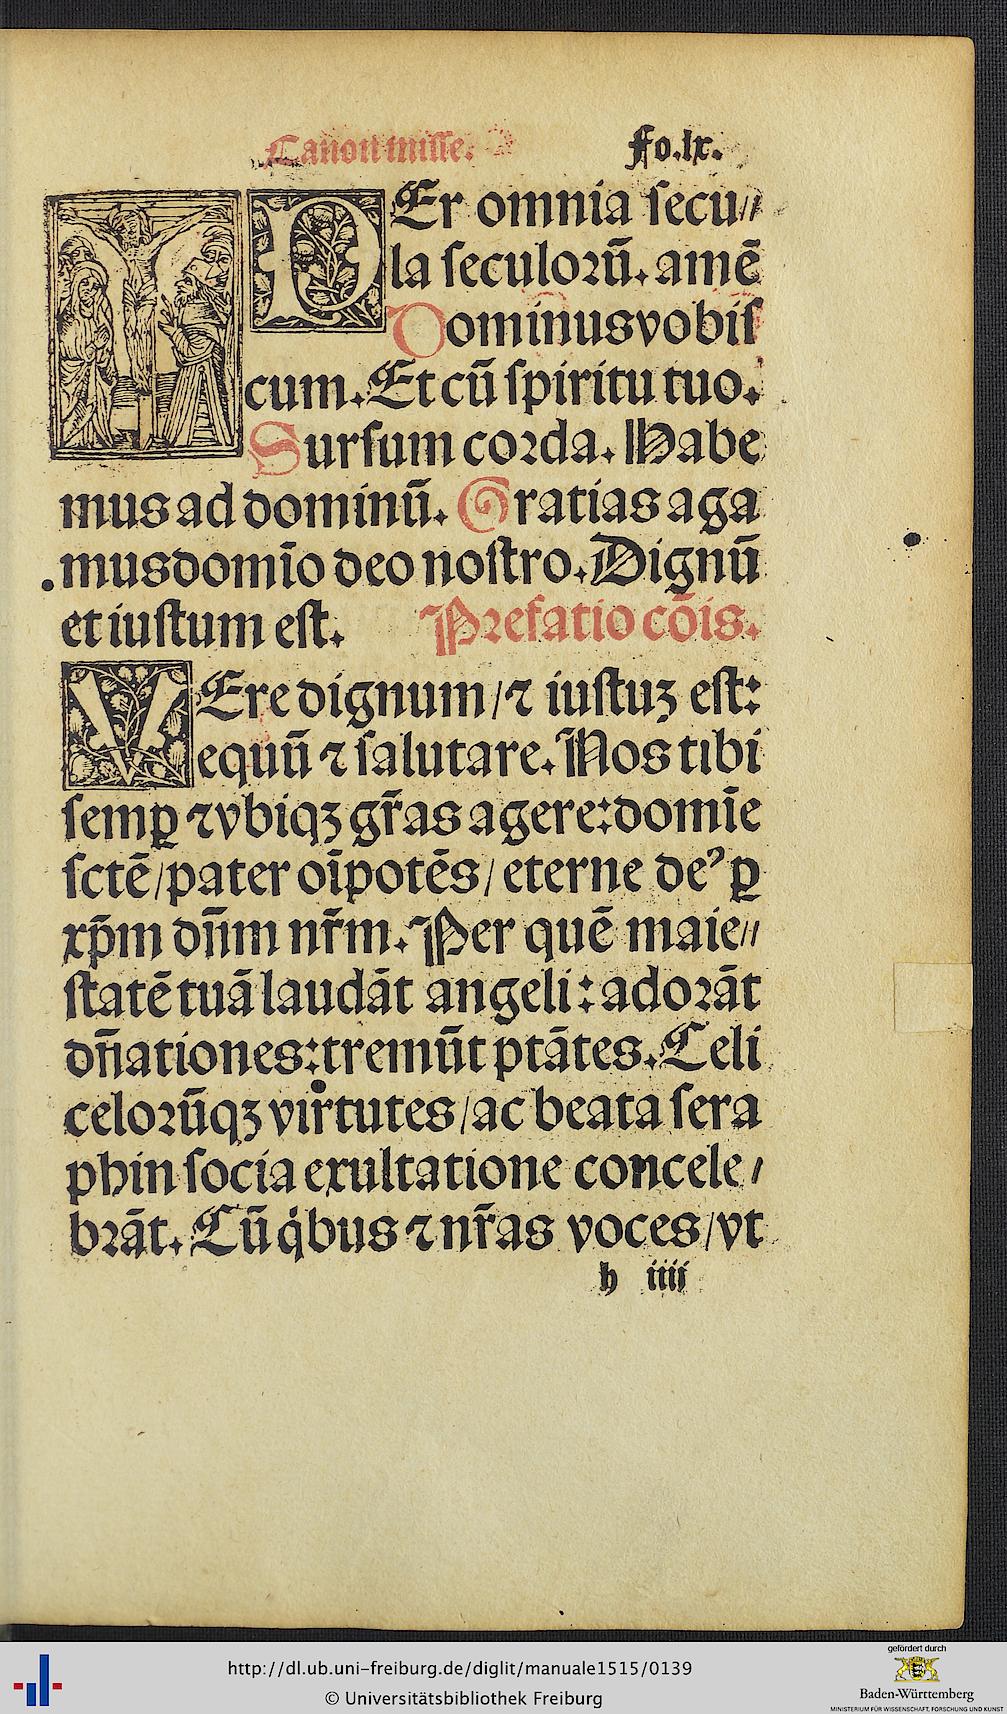 Canon misse.
Fo.lx.
PEr omnia secu//
la seculoꝛū. amē
Dominus vobis
cum. Et cū spiritu tuo.
Sursum coꝛda. Habe
mus ad dominū. Gratias aga
mus domīo deo nostro. Dignū
et iustum est. Pꝛefatio cōis.
VEre dignum/⁊ iustuꝫ est:
equū ⁊ salutare. Nos tibi
semꝑ ⁊ vbiqꝫ gr̄as agere: domīe
sctē/pater oīpotēs/ eterne deꝰ ꝑ
xp̄m dn̄m nr̄m. Per quē maie//
statē tuā laudāt angeli: adoꝛāt
dn̄ationes: tremūt ptātes. Celi
celoꝛūqꝫ virtutes/ac beata sera
phin socia exultatione concele/
bꝛāt. Cū q̇bus ⁊ nr̄as voces/vt
h iiij
http://dl.ub.uni-freiburg.de/diglit/manuale1515/0139
© Universitätsbibliothek Freiburg
gefördert durch
Baden-Württemberg
MINISTERIUM FÜR WISSENSCHAFT, FORSCHUNG UND KUNST